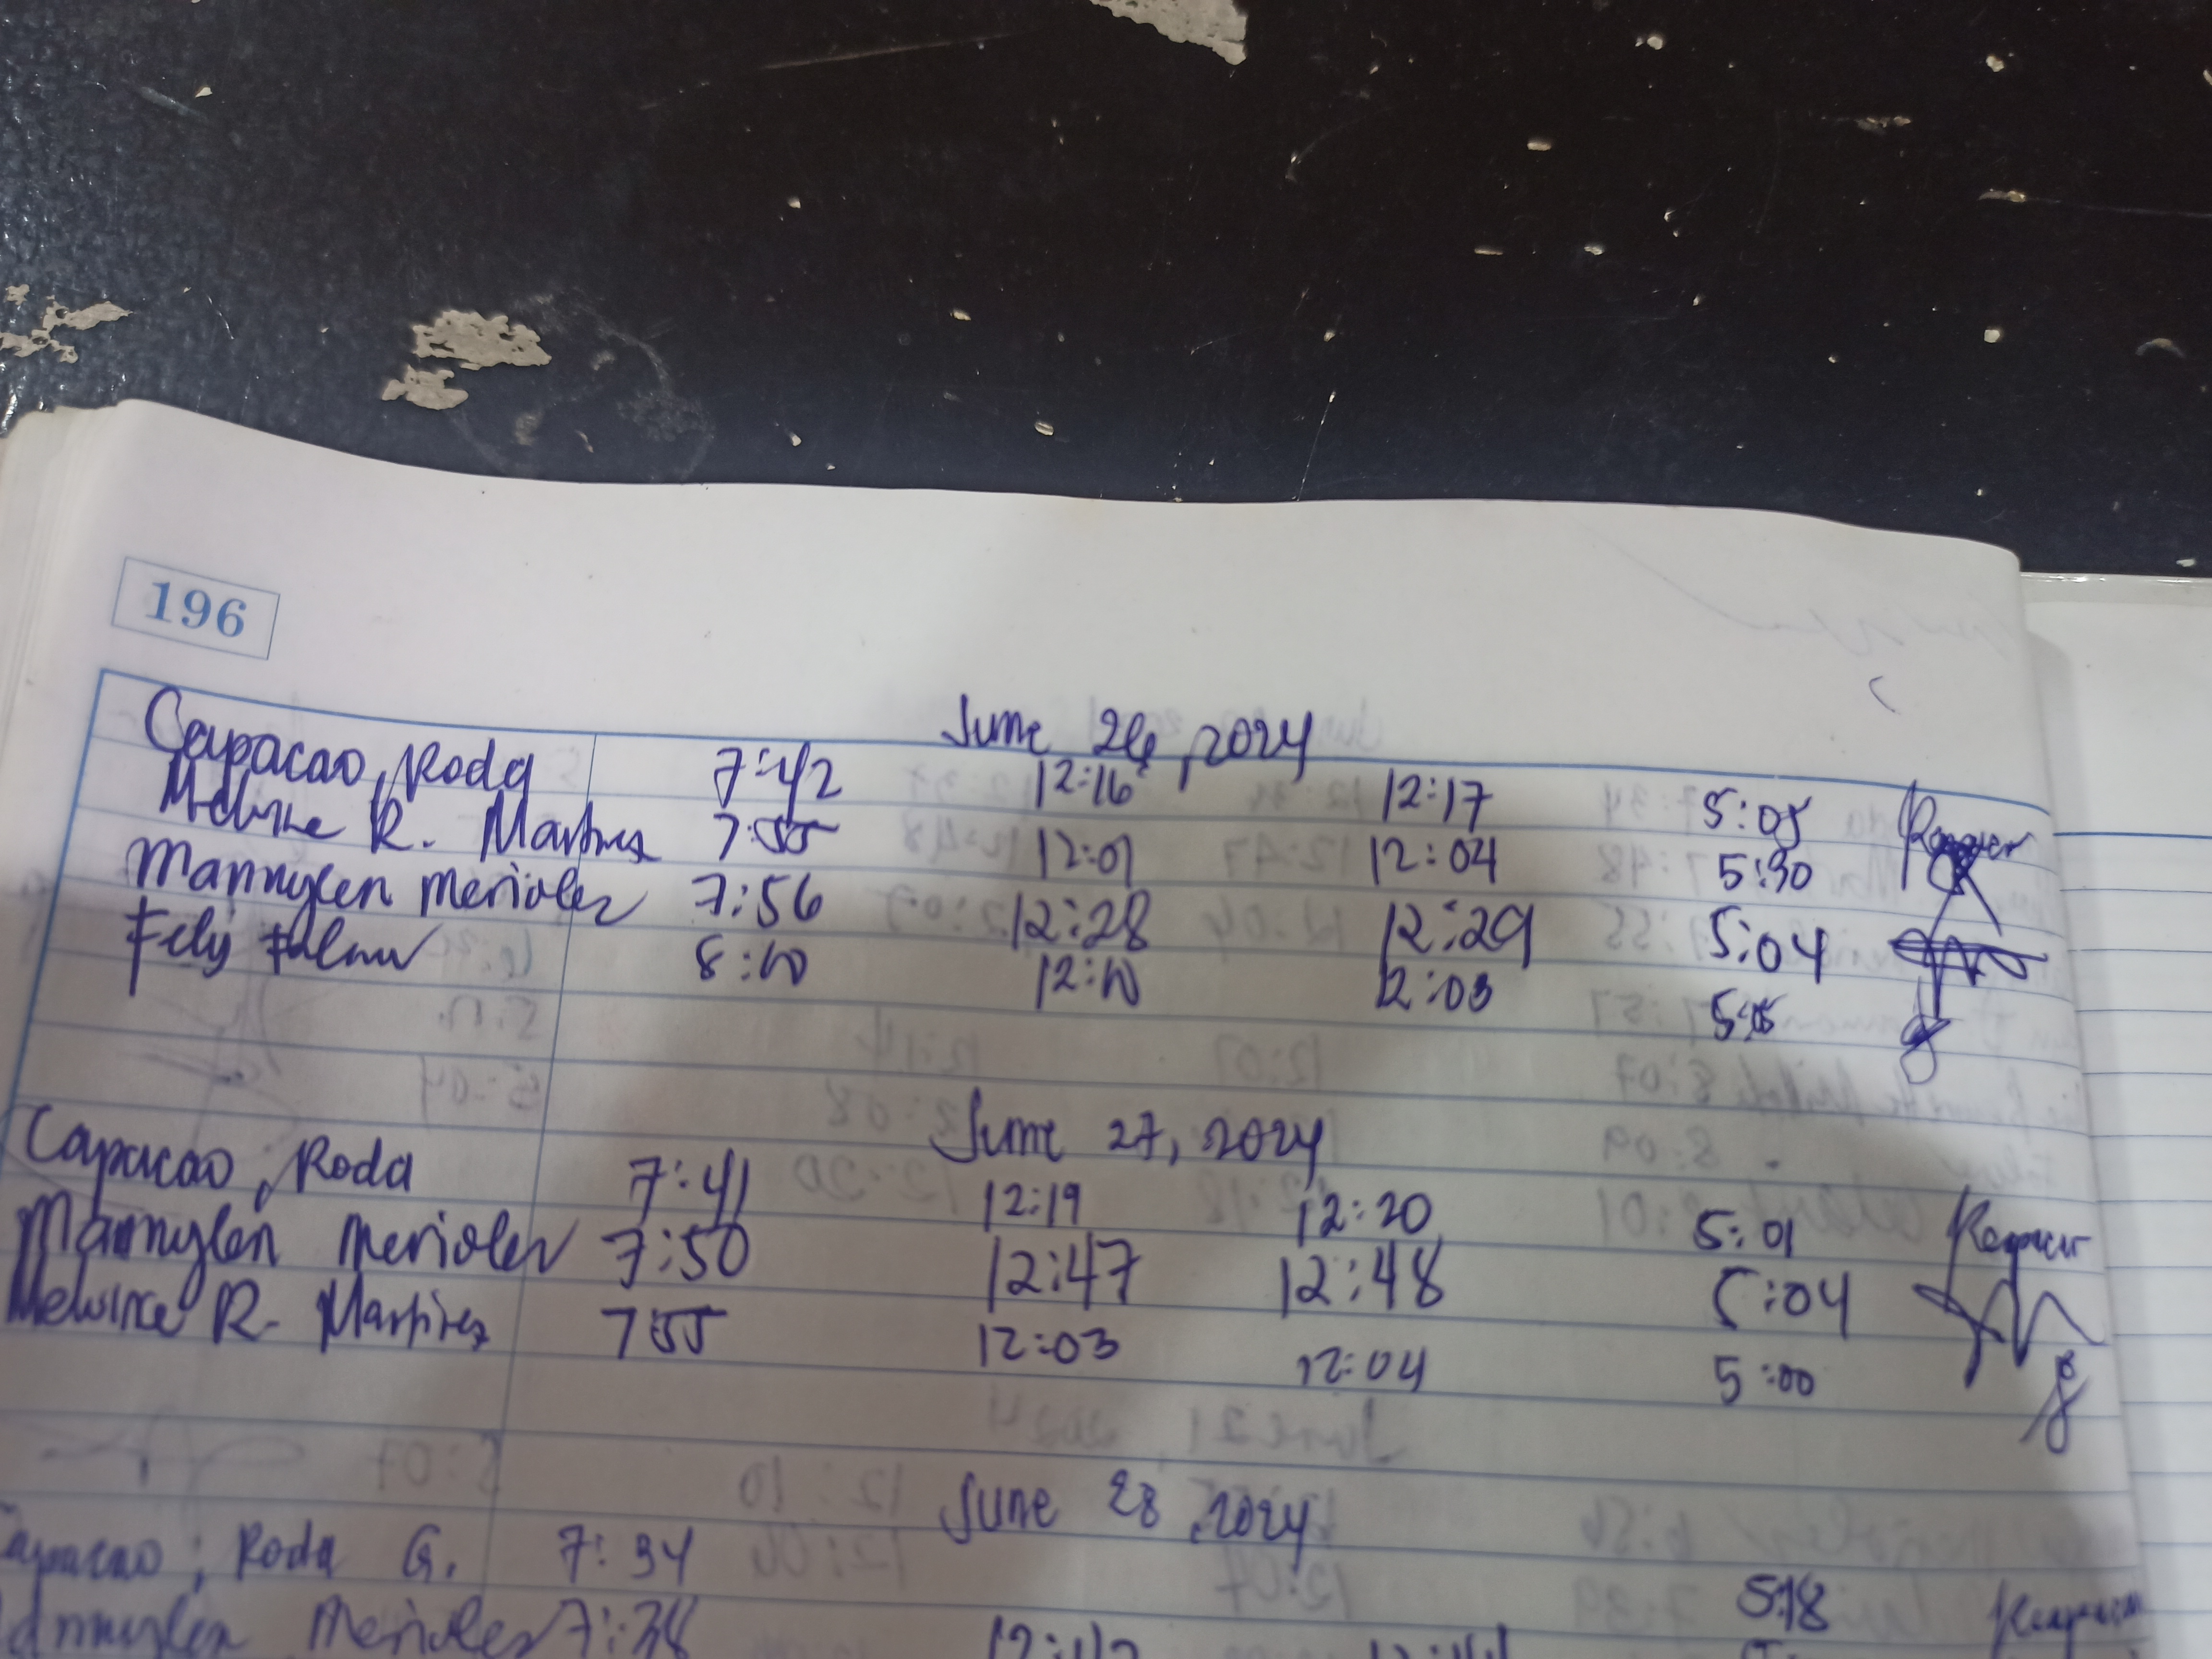 196
June 26, 2024
Capacao, Roda 7:42 12:16 12:17 5:05
Melvine R. Martinez 7:55 12:01 12:04 5:30
Mannylen Merioles 7:56 12:28 12:29 5:04
8:10 12:10 12:03 5:05
June 27, 2024
Capacao, Roda 7:41 12:19 12:20 5:01
Mannylen Merioles 7:50 12:47 12:48 5:04
Melvine R. Martinez 7:55 12:03 12:04 5:00
June 28, 2024
Capacao, Roda G. 7:34 5:18
Mannylen Merioles 7:38